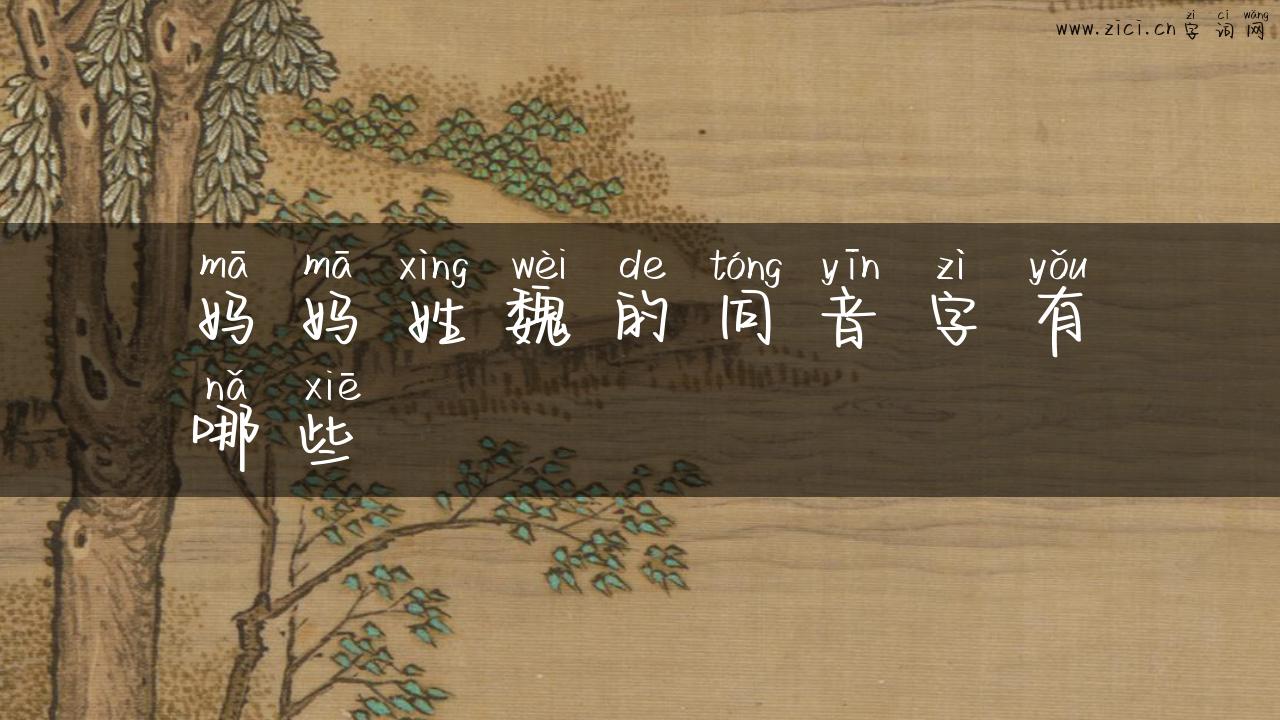 zì cí wǎng
www.zici.cn 字词网
mā mā xìng wèi de tóng yīn zì yǒu
妈妈姓魏的同音字有
nǎ xiē
哪些